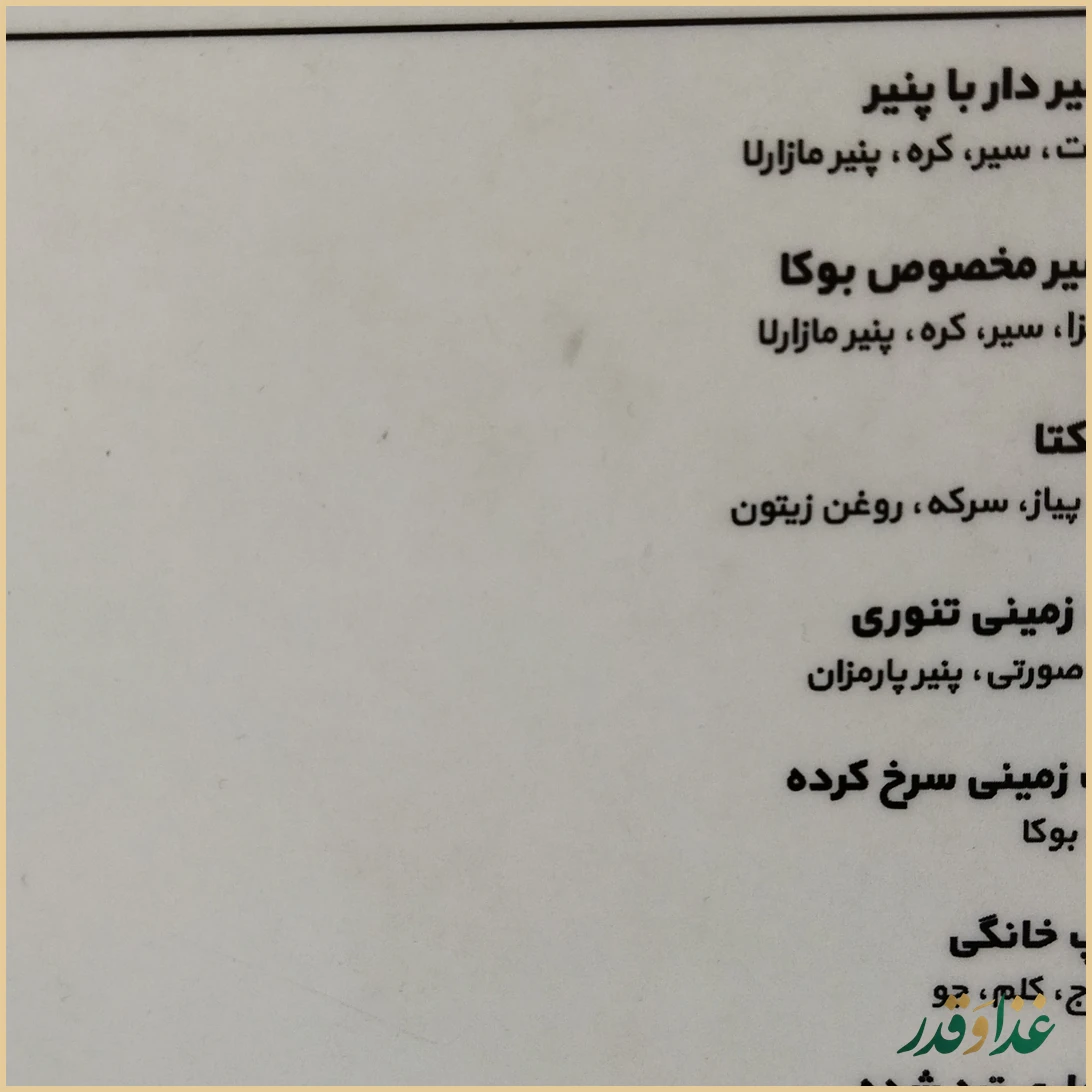 دار با پنیر
سیر، کره، پنیر مازارلا
مخصوص بوکا
سیر، کره، پنیر مازارلا
پیاز، سرکه، روغن زیتون
زمینی تنوری
صورتی، پنیر پارمزان
زمینی سرخ کرده
بوکا
خانگی
کلم، جو
غذا و قدر